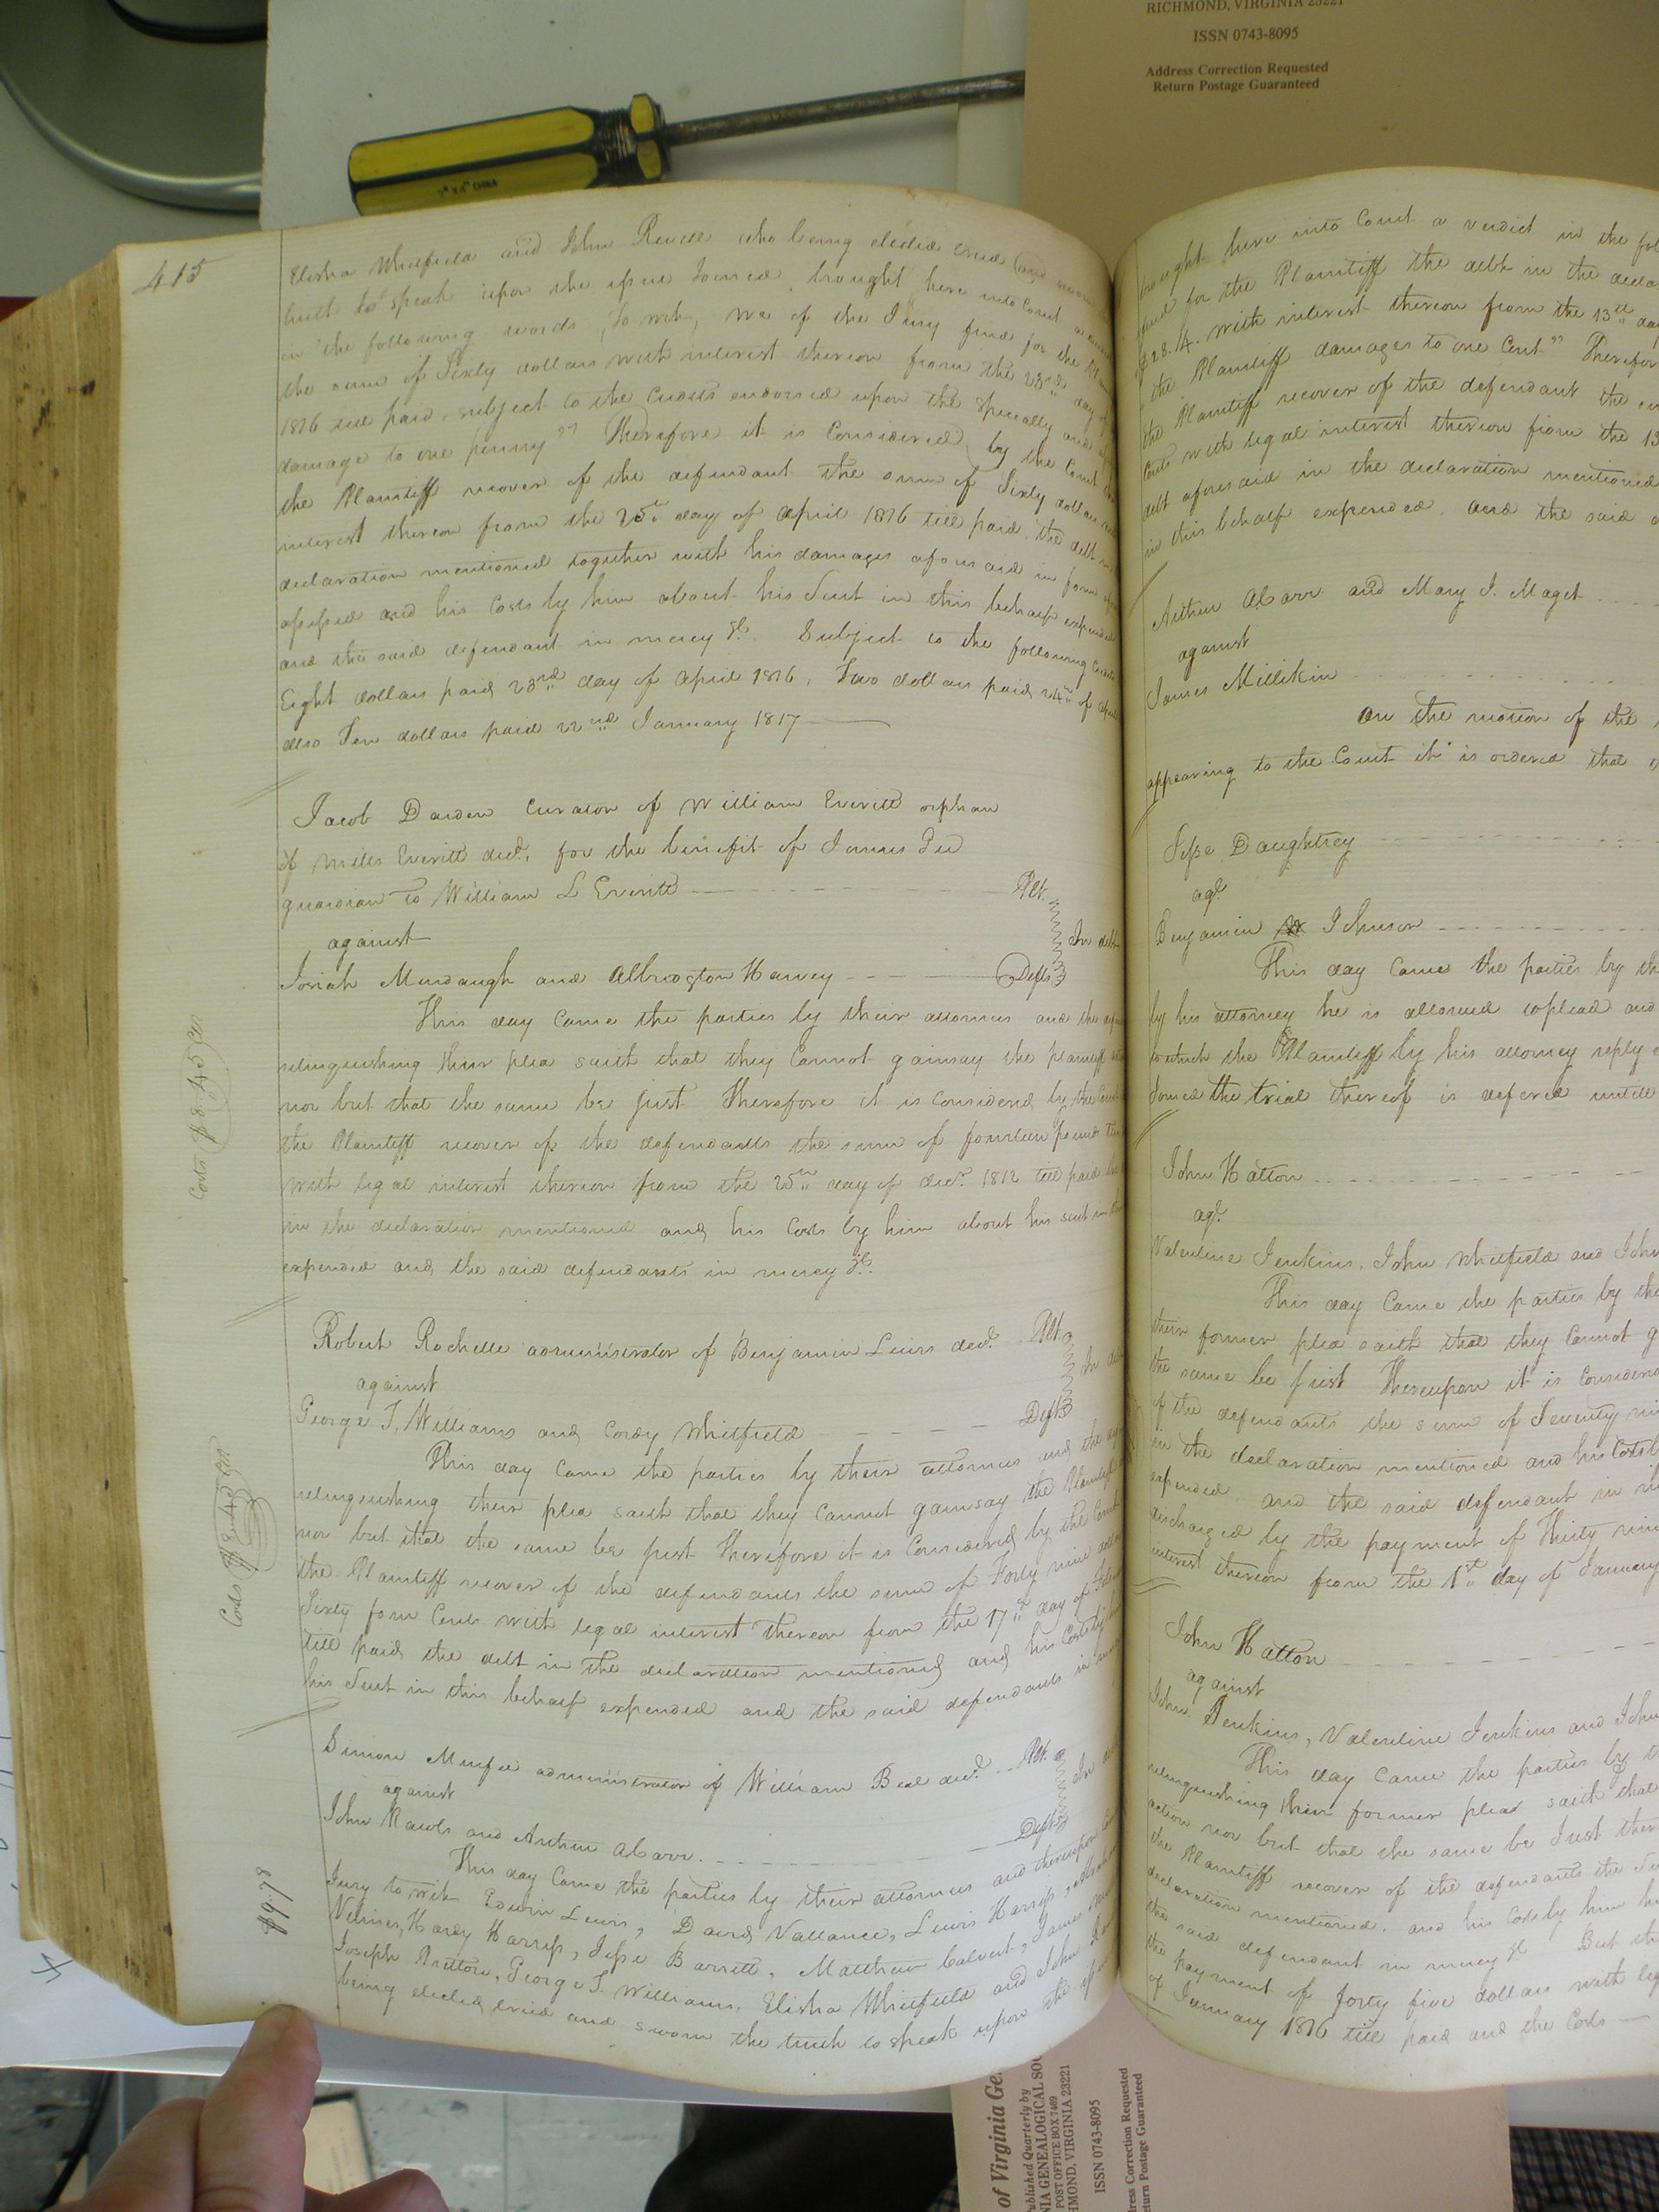 RICHMOND, VIRGINIA 23221
ISSN 0743-8095
Address Correction Requested
Return Postage Guaranteed
CHINA
415
Elisha Whitfield and John Reuell who being elected tried and
truth to speak upon the issue Joined, brought here into Court
in the following words, to wit, We of the Jury find for the
the sum of Sixty dollars with interest thereon from the 23rd day
1816 till paid, subject to the Credits endorsed upon the Specialty and
damage to one penny" Therefore it is Considered by the Court
the Plaintiff recover of the defendant the sum of Sixty dollars
interest thereon from the 25th day of April 1816 till paid, the debt
declaration mentioned together with his damages aforesaid in form
assessed and his Costs by him about his Suit in this behalf expended
and the said defendant in mercy &c. Subject to the following
Eight dollars paid 23rd day of April 1816, Two dollars paid 24th of
also Ten dollars paid 22nd January 1817
Jacob Darden Curator of William Everitt orphan
of Mills Everitt decd. for the benefit of James
guardian to William L Everitt Plt.
against In debt
Josiah Murdaugh and Albridgton Harvey Defts
This day Came the parties by their attornies and the
relinquishing their plea saith that they Cannot gainsay the plaintiffs
nor but that the same be just Therefore it is Considered by the Court
the Plaintiff recover of the defendants the sum of fourteen pounds
with legal interest thereon from the 25th day of decr. 1812 till paid
in the declaration mentioned and his Costs by him about his suit
expended and the said defendants in mercy &c.
Costs $8.45
Robert Rochelle administrator of Benjamin Lewis decd. Plt.
against
George T. Williams and Cordy Whitfield Defts
This day Came the parties by their attornies and the
relinquishing their plea saith that they Cannot gainsay the Plaintiffs
nor but that the same be just Therefore it is Considered by the Court
the Plaintiff recover of the defendants the sum of Forty nine
Sixty four Cents with legal interest thereon from the 17th day of
till paid the debt in the declaration mentioned and his Costs by
his Suit in this behalf expended and the said defendants in
Costs $8.45
Simon Murfee administrator of William Beal decd. Plt.
against
John Rawls and Arthur Defts
This day Came the parties by their attornies and thereupon
Jury to wit Edwin Lewis, David Vallance, Lewis Harris
Hardy Harriss, Jesse Barrett, Matthew Calvert, James
Joseph George T. Williams, Elisha Whitfield and John
being elected tried and sworn the truth to speak upon the
$9.78
brought here into Court a verdict in the
find for the Plaintiff the debt in the
$28.14. with interest thereon from the 13th day
the Plaintiff damages to one Cent" Therefore
the Plaintiff recover of the defendant the
Cents with legal interest thereon from the 13
debt aforesaid in the declaration mentioned
in this behalf expended, and the said
Arthur and Mary J. Maget
against
James Millikin
On the motion of the
appearing to the Court it is ordered that
Jesse Daughtrey
agt.
Benjamin Johnson
This day Came the parties by
by his attorney he is allowed to plead and
to which the Plaintiff by his attorney reply
Joined the trial thereof is defered untill
John Hatton
agt.
Valentine Jenkins, John Whitfield and John
This day Came the parties by the
their former plea saith that they Cannot
the same be just Thereupon it is Considered
of the defendants the sum of Seventy
in the declaration mentioned and his Costs
expended, and the said defendant in
discharged by the payment of Thirty nine
interest thereon from the 1st day of January
John Hatton
against
John Jenkins, Valentine Jenkins and John
This day Came the parties by
relinquishing their former pleas saith that
action nor but that the same be Just
the Plaintiff recover of the defendants the
declaration mentioned, and his Costs by him
the said defendant in mercy &c But
the payment of forty five dollars with
of January 1816 till paid and the Costs
of Virginia
Published Quarterly by
GENEALOGICAL
POST OFFICE BOX 7469
RICHMOND, VIRGINIA 23221
ISSN 0743-8095
Address Correction Requested
Return Postage Guaranteed